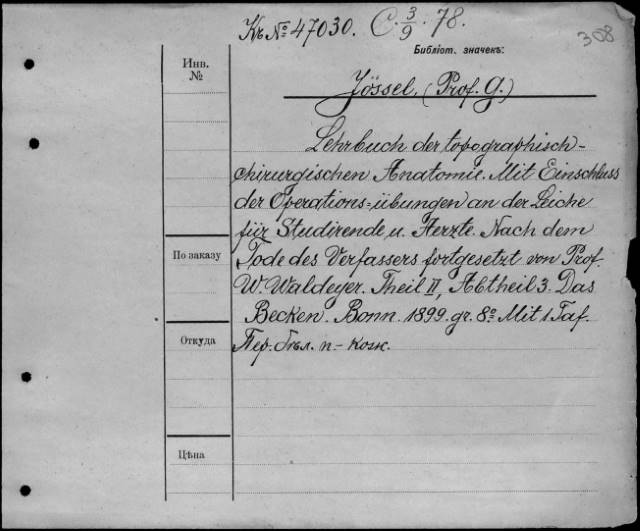 Къ № 47030. C. 3/9. 78.
308
Библіот. значекъ:
Инв.
№
Jössel, (Prof. G.)
Lehrbuch der topographisch-
chirurgischen Anatomie. Mit Einschluss
der Operations-übungen an der Leiche
für Studirende u. Aerzte. Nach dem
По заказу
Tode des Verfassers fortgesetzt von Prof.
W. Waldeyer. Theil II, Abtheil 3. Das
Becken. Bonn. 1899. gr. 8º Mit 1 Taf.
Откуда
Пер. бѣл. п.-кож.
Цѣна